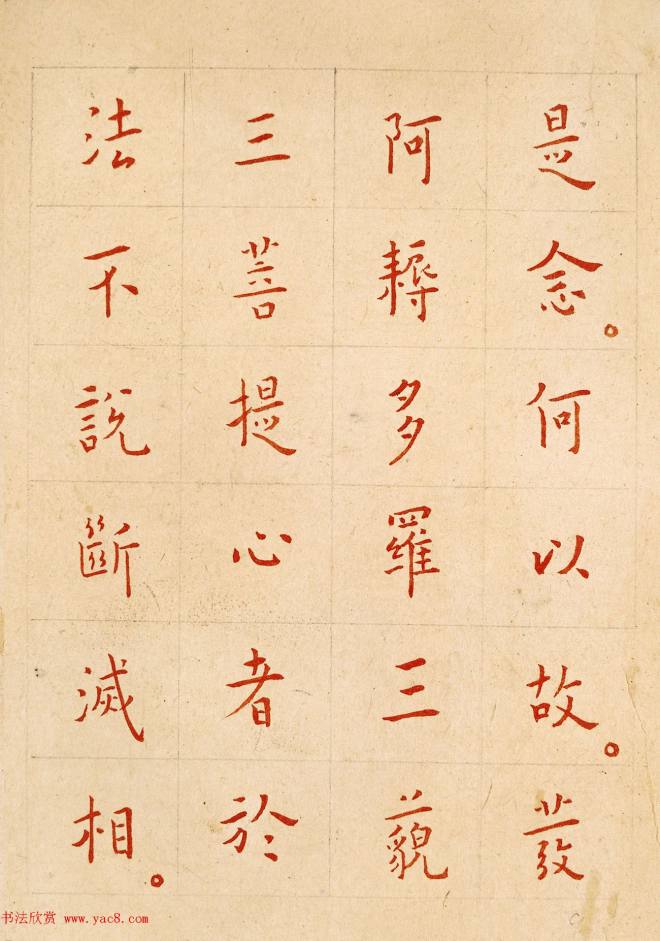 是念。何以故。發
阿耨多羅三藐
三菩提心者於
法不說斷滅相。
书法欣赏 www.yac8.com